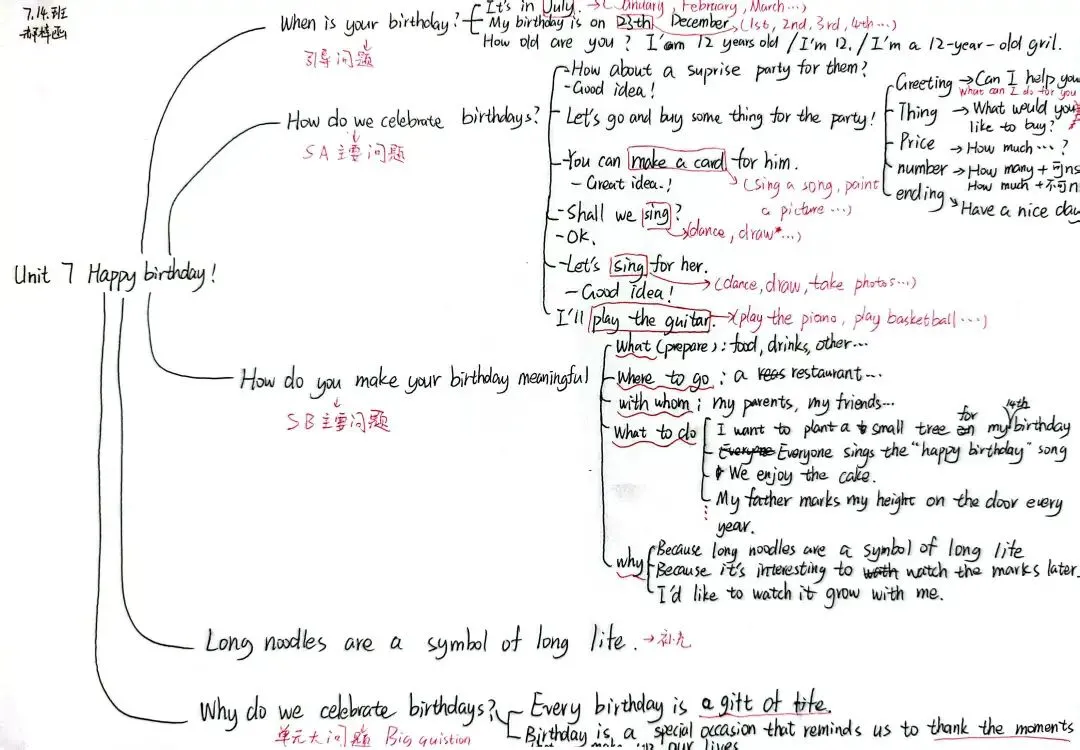 7.14.班
Unit 7 Happy birthday!
When is your birthday?
引导问题
It's in July. →(January, February, March...)
My birthday is on 23th December (1st, 2nd, 3rd, 4th...)
How old are you? I'am 12 years old / I'm 12. / I'm a 12-year-old gril.
How do we celebrate birthdays?
SA 主要问题
-How about a suprise party for them?
-Good idea!
Let's go and buy some thing for the party!
Greeting → Can I help you
What can I do for you
Thing → What would you
like to buy?
Price → How much...?
number → How many + 可ns
How much + 不可n
ending → Have a nice day
-You can make a card for him.
- Great idea.!
(sing a song, paint
a picture ...)
-Shall we sing?
-OK.
(dance, draw...)
-Let's sing for her.
- Good idea!
(dance, draw, take photos...)
I'll play the guitar. →(play the piano, play basketball...)
How do you make your birthday meaningful
SB 主要问题
What (prepare): food, drinks, other...
Where to go: a restaurant...
with whom: my parents, my friends...
What to do
I want to plant a small tree for my 14th birthday
Everyone sings the "happy birthday" song
We enjoy the cake.
My father marks my height on the door every
year.
why
Because long noodles are a symbol of long life
Because it's interesting to watch the marks later.
I'd like to watch it grow with me.
Long noodles are a symbol of long life. →补充
Why do we celebrate birthdays?
单元大问题 Big quistion
Every birthday is a gift of life.
Birthday is a special occasion that reminds us to thank the moments
that make up our lives